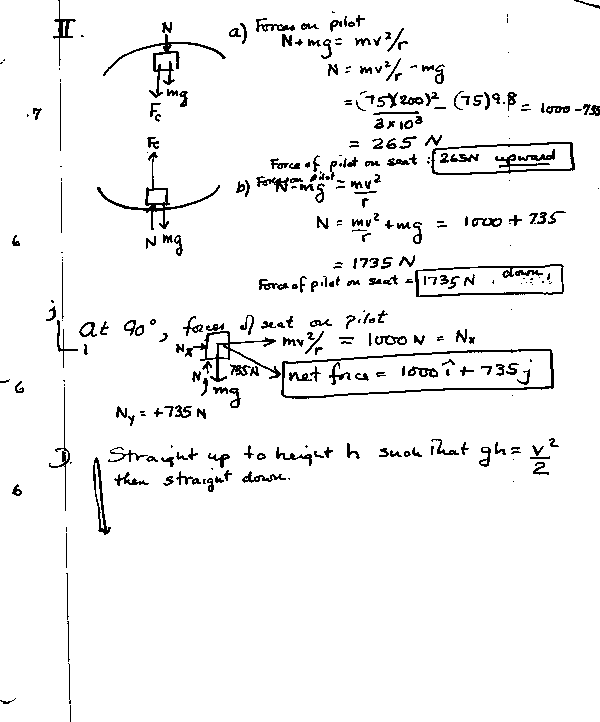 II
a) Forces on pilot
N
N + mg = mv²/r
N = mv²/r - mg
mg
Fc
= (75)(200)²/3×10³ - (75)9.8 = 1000 - 735
.7
= 265 N
Force of pilot on seat: 265N upward
Fc
b) Force on pilot
N - mg = mv²/r
N = mv²/r + mg = 1000 + 735
6
N mg
= 1735 N
Force of pilot on seat = 1735 N down
j
i
At 90°, forces of seat on pilot
Nx
mv²/r = 1000 N = Nx
N
735N
mg
net force = 1000 î + 735 j
6
Ny = +735 N
Straight up to height h such that gh = v²/2
then straight down.
6